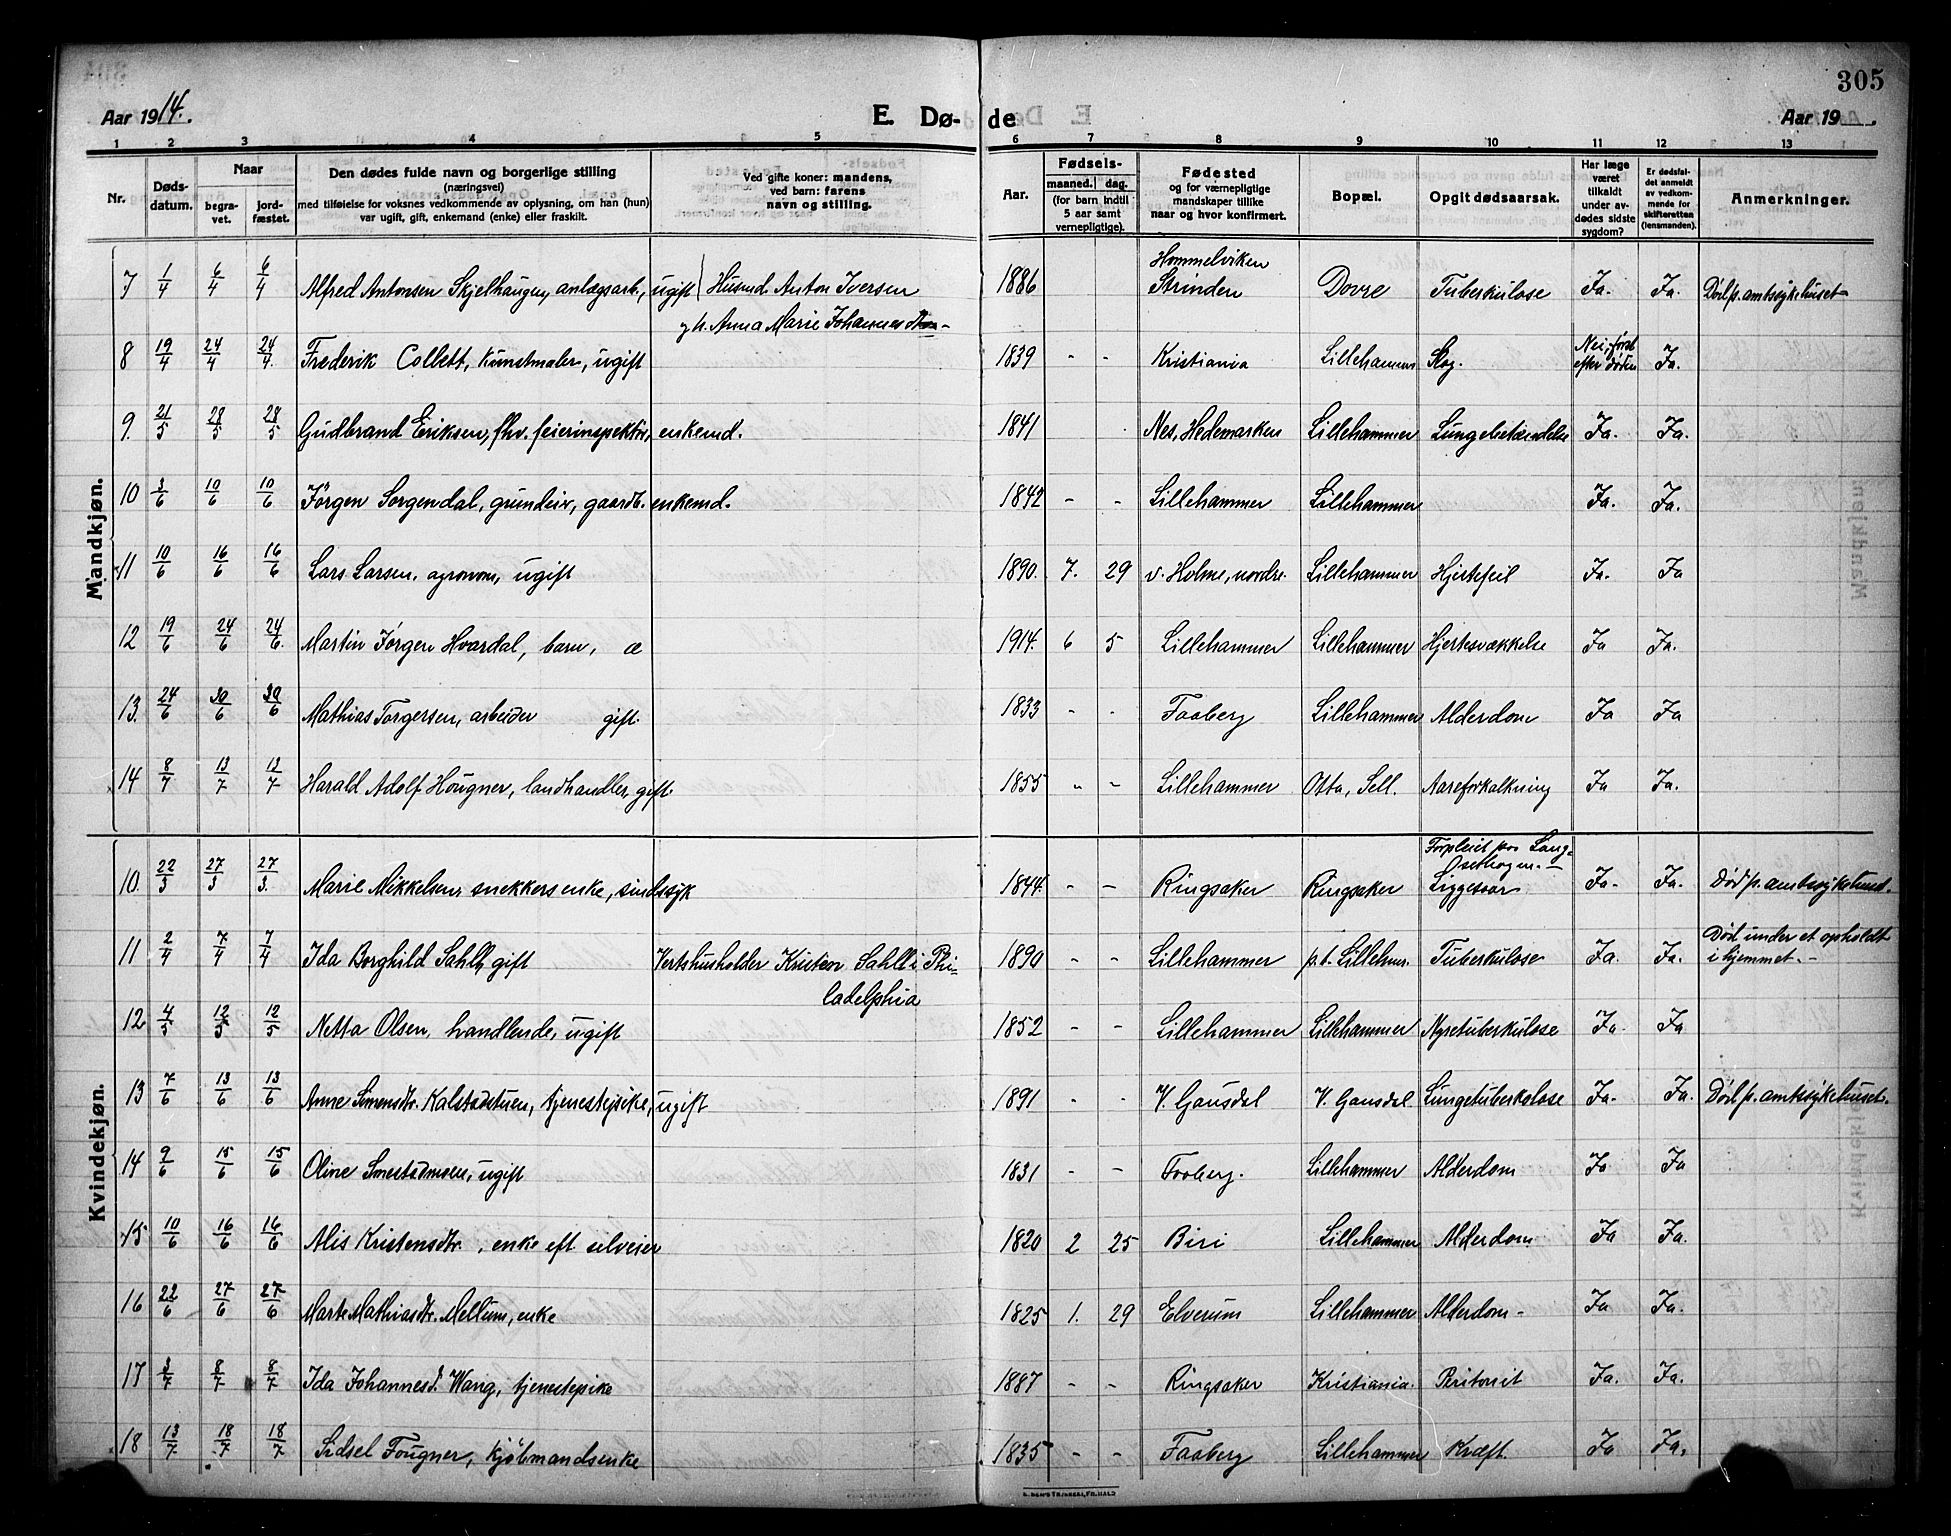 305
Aar 1914. E. Dø- de Aar 19
1 2 3 4 5 6 7 8 9 10 11 12 13
Nr.
Døds-
datum.
Naar
begra-
vet.
jord-
fæstet.
Den dødes fulde navn og borgerlige stilling
(næringsvei)
med tilføielse for voksnes vedkommende av oplysning, om han (hun)
var ugift, gift, enkemand (enke) eller fraskilt.
Ved gifte koner: mandens,
ved barn: farens
navn og stilling.
Aar.
Fødsels-
maaned. dag.
(for barn indtil
5 aar samt
vernepligtige).
Fødested
og for værnepligtige
mandskaper tillike
naar og hvor konfirmert.
Bopæl.
Opgit dødsaarsak.
Har læge
været
tilkaldt
under av-
dødes sidste
sygdom?
Er dødsfal-
det anmeldt
av vedkom-
mende for
skifteretten
(lensmanden).
Anmerkninger.
Mandkjøn.
7 1/4 6/4 6/4 Alfred Antonsen Skjelhaugen, anlægsarb., ugift Husmd. Anton Iversen 1886 Hommelviken
Strinden Dovre Tuberkulose Ja. Ja. Död p. amtssykehuset
g h. Anna Marie Johannesdtr.
8 19/4 24/4 24/4. Frederik Collett, kunstmaler, ugift 1839 - - Kristiania Lillehammer Slag. Nei, først
efter døden Ja.
9. 21/5 28/5 28/5 Gudbrand Eriksen, fhv. feierinspektør, enkemd. 1841 Nes, Hedemarken Lillehammer Lungebetændelse Ja. Ja.
10 3/6 10/6 10/6 Jørgen Sorgendal, grundeier, gaardb. enkemd. 1842 - - Lillehammer Lillehammer Ja. Ja.
11 10/6 16/6 16/6 Lars Larsen, agronom, ugift 1890. 7. 29 v. Holme, nordre. Lillehammer Hjertefeil Ja. Ja
12 19/6 24/6 24/6. Martin Jørgen Hvardal, barn, æ 1914. 6 5 Lillehammer Lillehammer Hjertesvækkelse Ja Ja.
13. 24/6 30/6 30/6 Mathias Torgersen, arbeider gift. 1833 - - Faaberg Lillehammer Alderdom Ja Ja
14 8/7 13/7 13/7 Harald Adolf Hougner, landhandler, gift 1855 - - Lillehammer Otta, Sell. Aareforkalkning Ja Ja.
Kvindekjøn.
10. 22/3 27/3 27/3. Marie Mikkelsen, snekkers enke, sindssyk 1844. - - Ringsaker Ringsaker Forpleiet paa Lang-
sethagen. -
Liggesaar Ja. Ja. Död p. amtssykehuset.
11 2/4 7/4 7/4 Ida Borghild Sahll, gift Vertshusholder Kristian Sahll i Phi-
ladelphia 1890 - - Lillehammer p.t. Lillehmr. Tuberkulose Ja. Ja. Död under et ophold
i hjemmet. -
12 4/5 12/5 12/5 Netta Olsen, handlende, ugift 1852 - - Lillehammer Lillehammer Nyretuberkulose Ja. Ja
13 7/6 13/6 13/6 Anne Simensdtr. Kalstadstuen, tjenestepike, ugift 1891 - - V. Gausdal V. Gausdal Lungetuberkulose Ja. Ja. Död p. amtssykehuset.
14 9/6 15/6 15/6 Oline Smestadmoen, ugift 1831 - - Faaberg. Lillehammer Alderdom Ja Ja
15 10/6 16/6 16/6 Alis Kristensdtr., enke eft selveier 1820 2 25 Biri Lillehammer Alderdom Ja Ja.
16 22/6 27/6 27/6 Marte Mathiasdtr. Mellum, enke 1825 1. 29 Elverum Lillehammer Alderdom - Ja Ja.
17 3/7 8/7 8/7 Ida Johannesd. Wang, tjenestepike 1887 - - Ringsaker Kristiania. Peritonit Ja. Ja.
18 13/7 18/7 18/7 Sidsel Fougner, kjøbmandsenke 1835 - - Faaberg Lillehammer Kræft. Ja Ja.